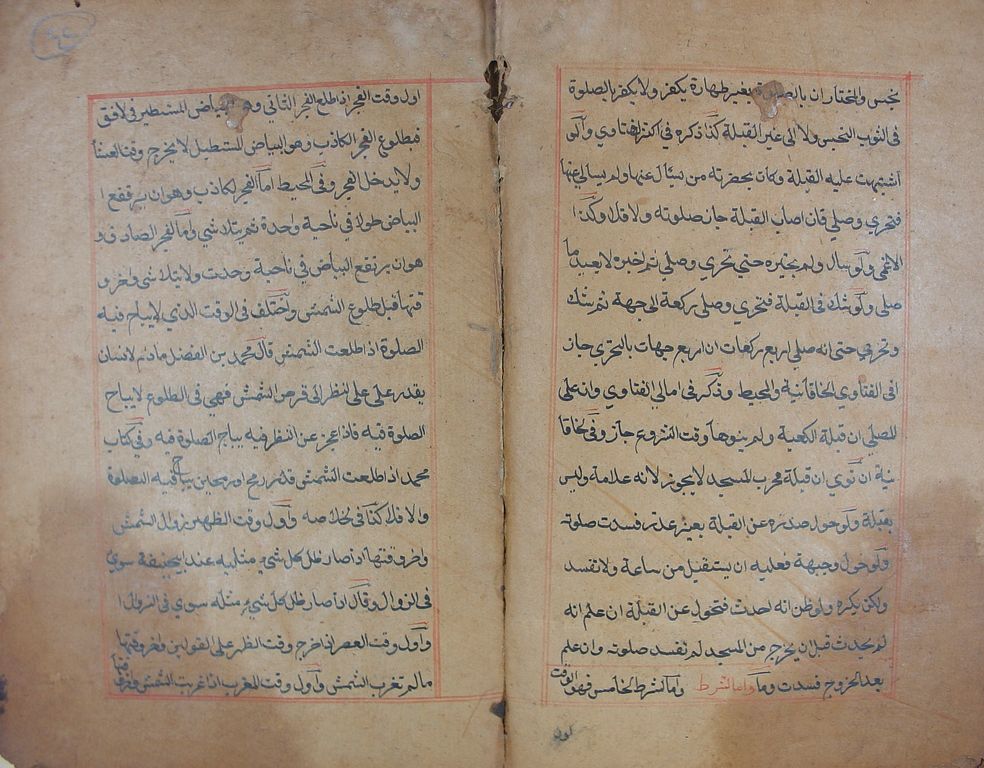 نجس والمختار ان بالصلوة بغير طهارة يكفر ولا يكفر بالصلوة
فى الثوب النجس ولا الى غير القبلة كذا ذكره فى اكثر الفتاوي ولو
اشتبهت عليه القبلة وكان بحضرته من يسأل عنها ولم يسأل عنها
فتحري وصلي فان اصاب القبلة جاز صلوته ولا فلا وكذا
الاعمي ولو سال ولم يخبره حتي تحري وصلي ثم اخبره لا يعيد ما
صلى ولو شك فى القبلة فتحري وصلى ركعة الى جهة ثم شك
وتحري حتى انه صلي اربع ركعات ان اربع جهات بالتحري جاز
افى الفتاوي الخاقانية والمحيط وذكر فى امالي الفتاوي وان على
المصلي ان قبلة الكعبة ولم ينوها وقت الشروع جاز وفى الخاقا
نية ان نوي ان قبلة محرب المسجد لا يجوز لانه علامة وليس
بقبلة ولو حول صدره عن القبلة بغير عذر فسدت صلوته
ولو حول وجبهة فعليه ان يستقبل من ساعة ولا تفسد
ولكن يكره ولو ظن انه احدث فتحول عن القبلة ان علم انه
لم يحدث قبل ن يخرج من المسجد لم تفسد صلوته وان علم
بعد الخروج فسدت وما واما الشرط وما الشرط الخامس فهو الوقت
اول
اول وقت الفجر اذا طلع الفجر الثاني وهو البياض المستطير فى لافق
فبطلوع الفجر الكاذب وهو البياض المستطيل لا يخرج وقت العشأ
ولا يدخل الفجر وفى المحيط اما الفجر الكاذب وهو ان يرتفع ا
البياض طولا في ناحية واحدة ثم يتلاشي واما الفجر الصادق و
هو ان يرتفع البياض فى ناحية وحدت ولا يتلاشى واخر و
قتها قبل طلوع الشمش واختلف فى الوقت الذي لا يباح فيه
الصلوة اذا طلعت الشمش قال محمد بن الفضل مادام لانسان
يقدر على على النظر الى قرص الشمش فهي فى الطلوع لا يباح
الصلوة فيه فاذا عجز عن النظر فيه يباح الصلوة فيه وفى كتاب
محمد اذا طلعت الشمش قدر رمح او رمحين يباح فيه الصلوة
والا فلا كذا فى الخلاصه واول وقت الظهر زوال الشمش
واخر وقتها اذا صار ظل كل شيء مثليه عند ابيحنيفة سوي
فى الزوال وقالا اذا صار ظل كل شيء مثله سوي فى الزوال ا
واول وقت العصر اذا خرج وقت الظهر على القولين واخر وقتها
مالم تغرب الشمش واول وقت المغرب اذا غربت الشمش واخر وقتها